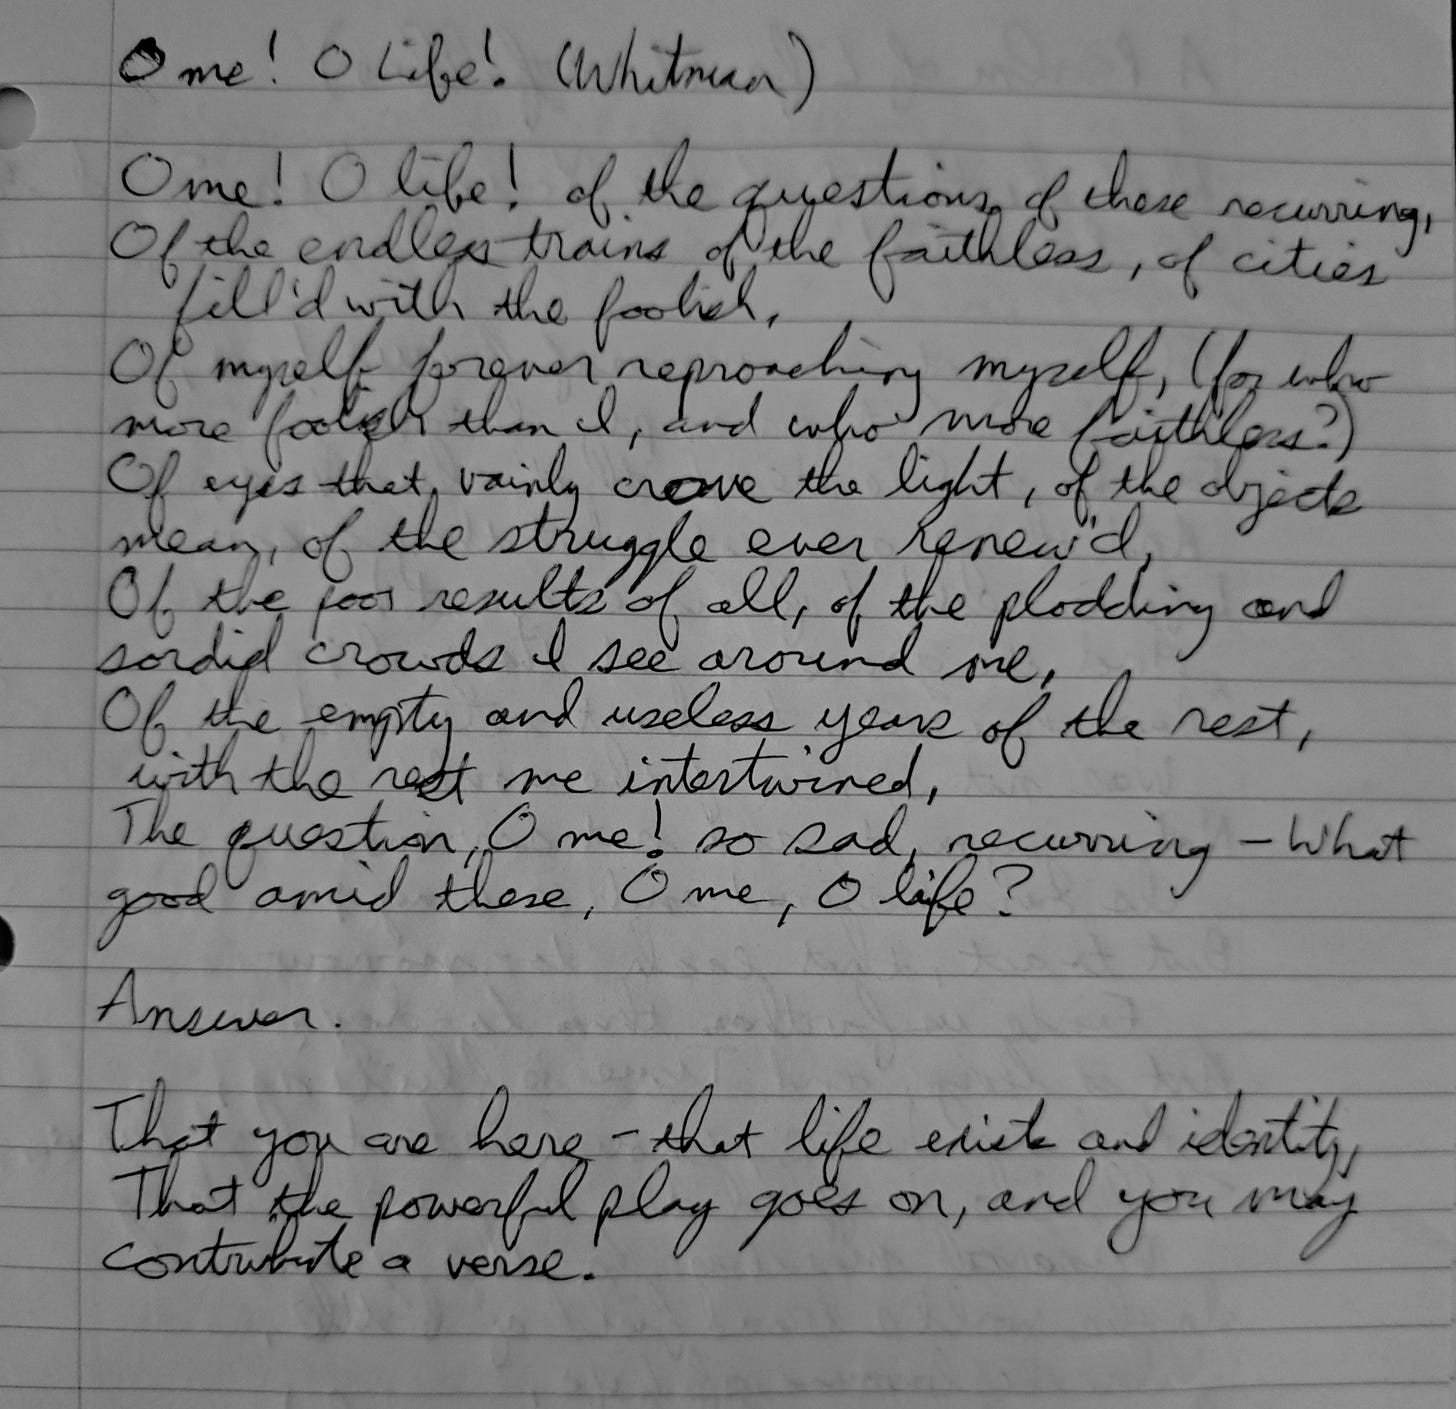 O me! O Life! (Whitman)
O me! O life! of the questions of these recurring,
Of the endless trains of the faithless, of cities
fill'd with the foolish,
Of myself forever reproaching myself, (for who
more foolish than I, and who more faithless?)
Of eyes that vainly crave the light, of the objects
mean, of the struggle ever renew'd,
Of the poor results of all, of the plodding and
sordid crowds I see around me,
Of the empty and useless years of the rest,
with the rest me intertwined,
The question, O me! so sad, recurring - What
good amid these, O me, O life?
Answer.
That you are here - that life exists and identity,
That the powerful play goes on, and you may
contribute a verse.